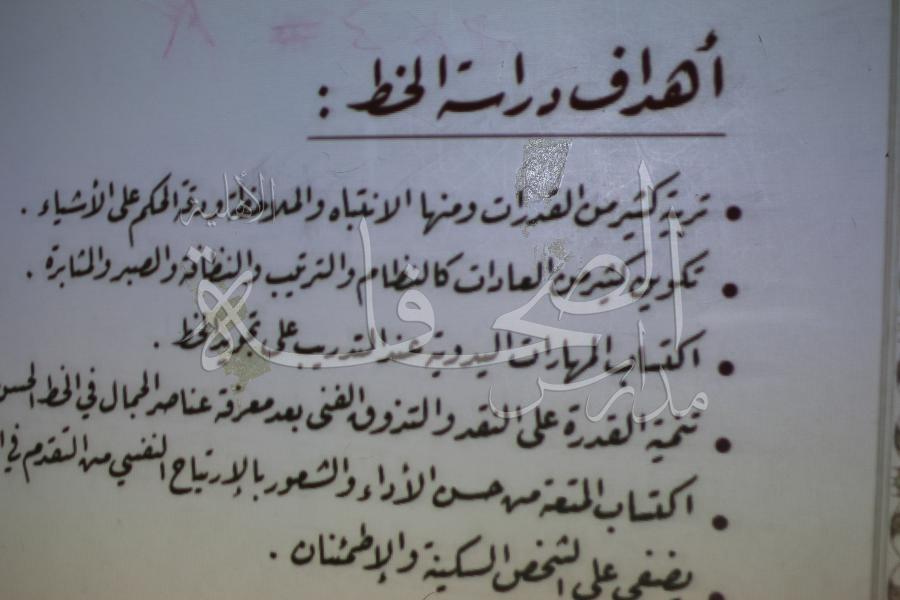 أهداف دراسة الخط :
تربية كثير من القدرات ومنها الانتباه والملاحظة ودقة الحكم على الأشياء .
تكوين كثير من العادات كالنظام والترتيب والنظافة والصبر والمثابرة .
اكتساب المهارات اليدوية عند التدريب على تجويد الخط .
تنمية القدرة على النقد والتذوق الفني بعد معرفة عناصر الجمال في الخط الحسن
اكتساب المتعة من حسن الأداء والشعور بالإرتياح النفسي من التقدم في
يضفي على الشخص السكينة والإطمئنان .
مدارس
الأهلية